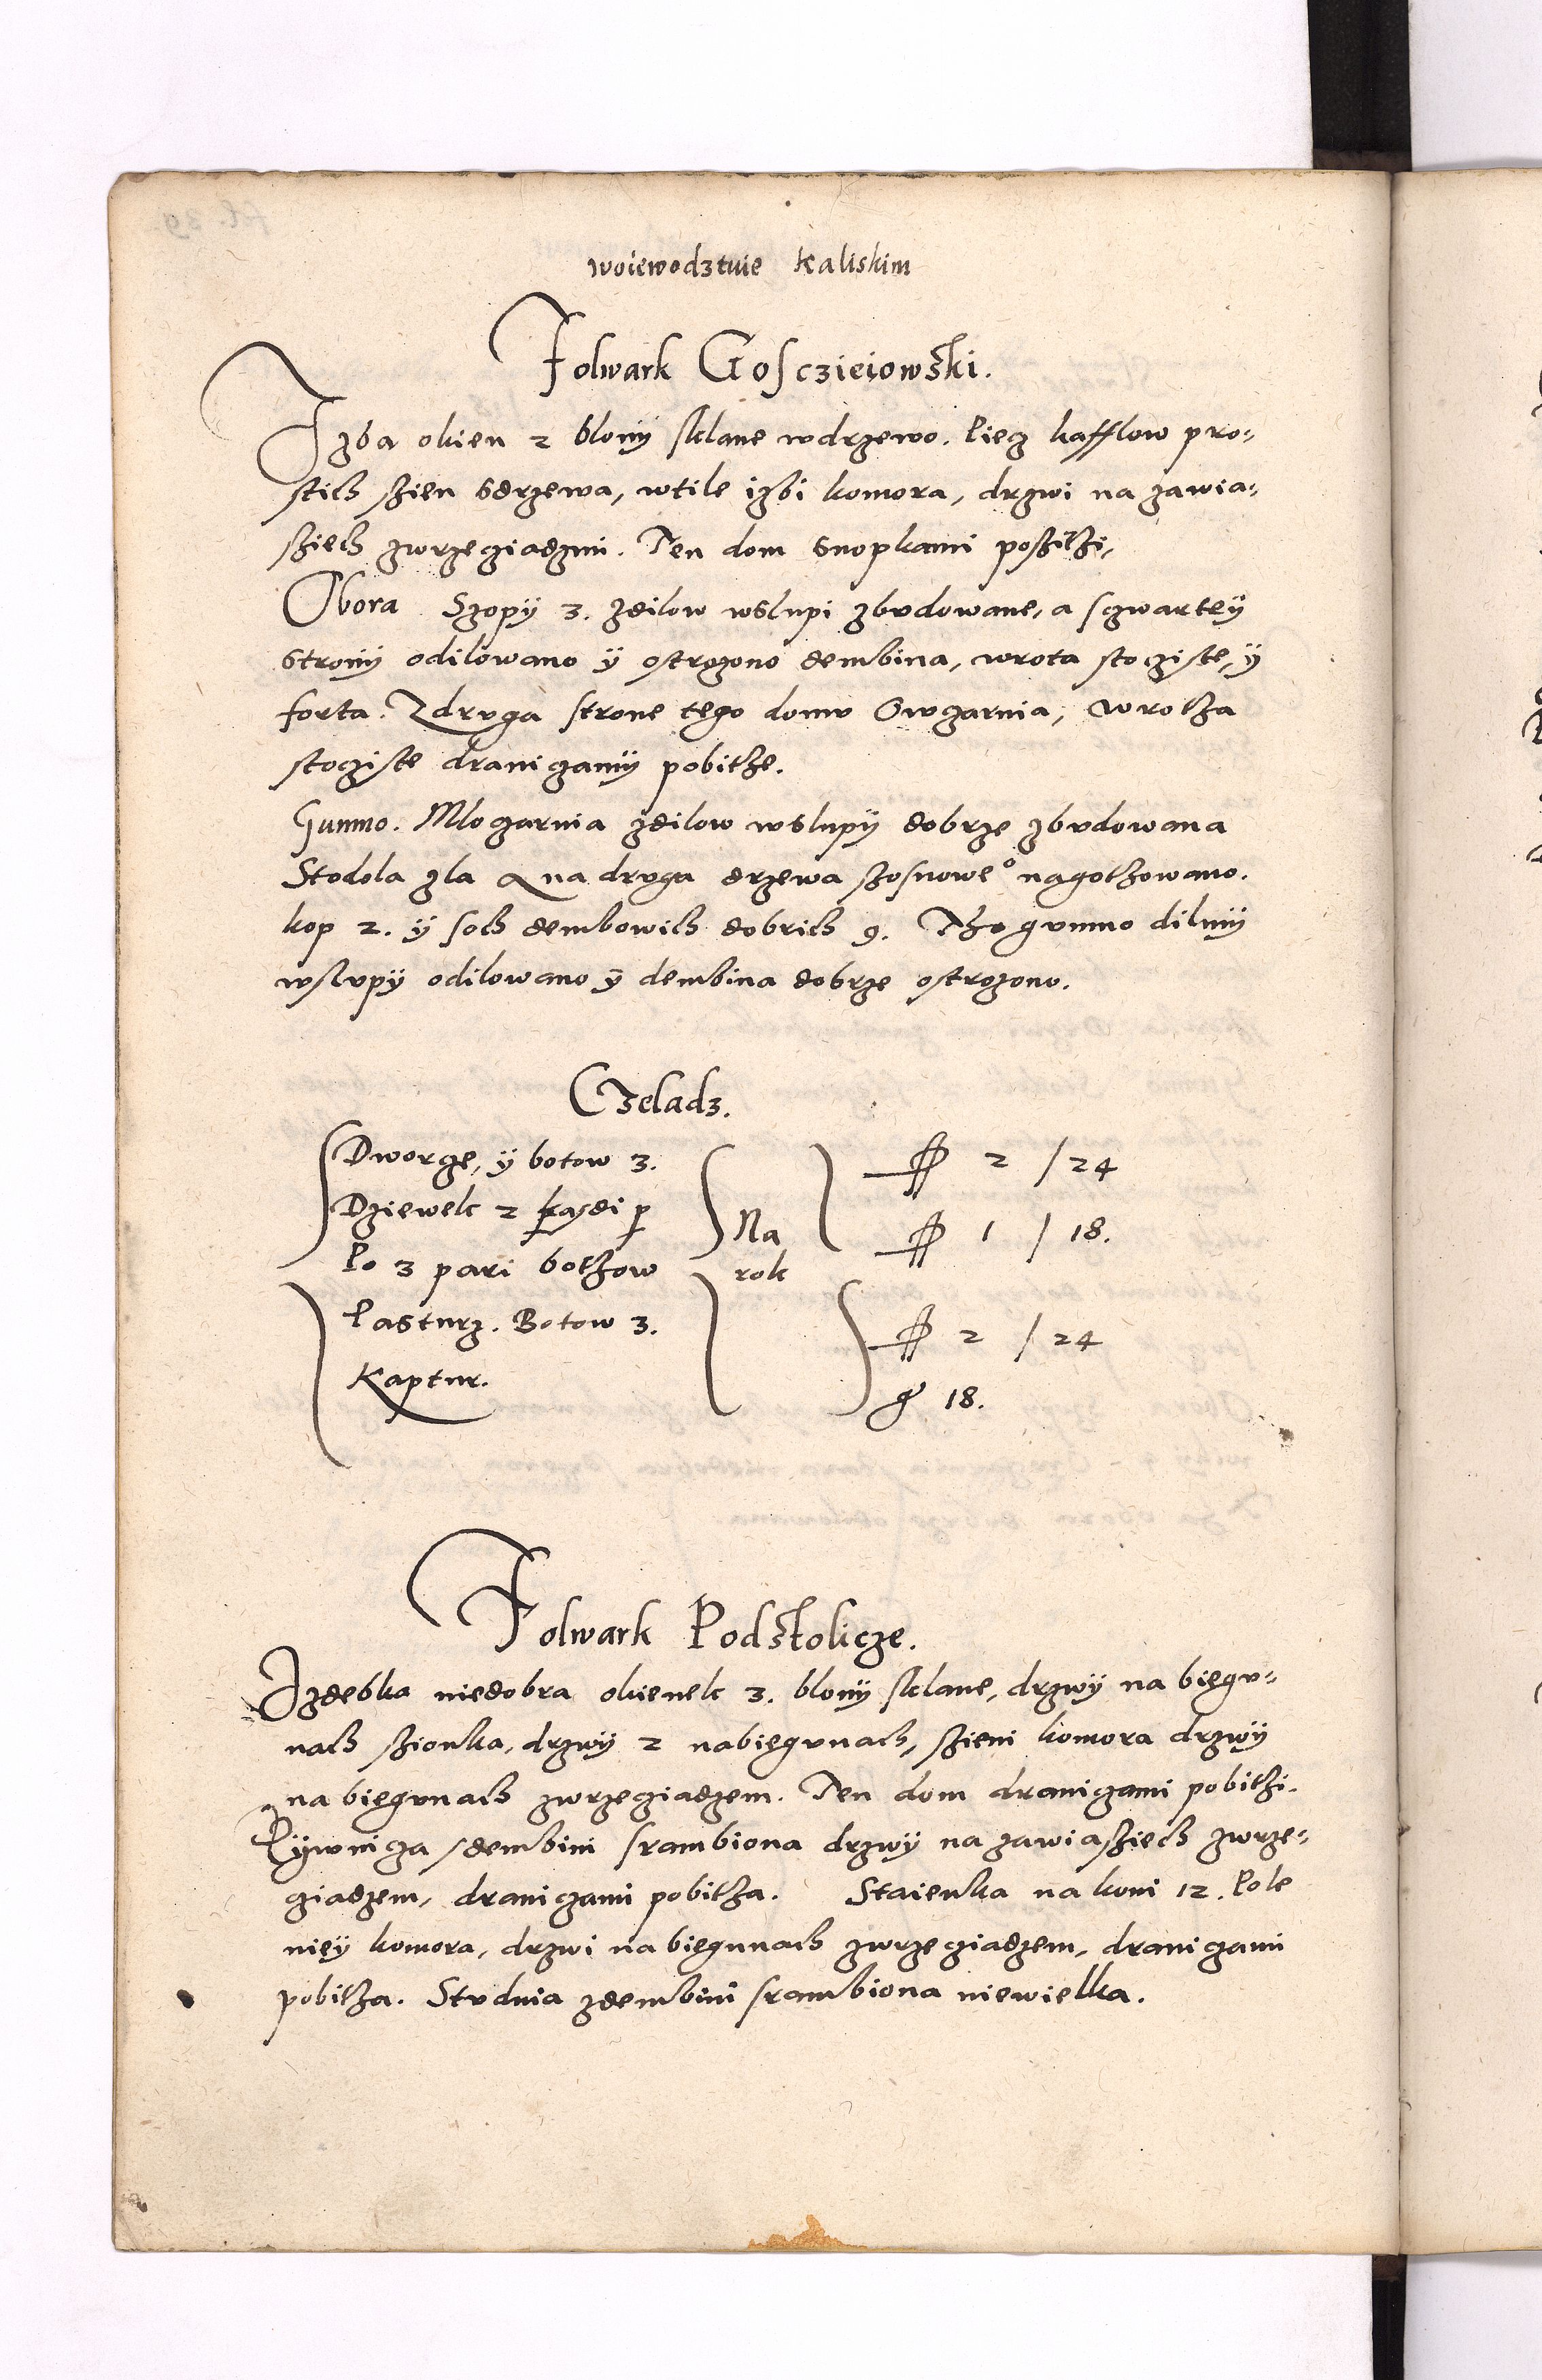 woiewodztwie kaliskim
Folwark Gosczieiowski.
Izba okien 2 blony sklane wdrzewo. Piecz kafflow pro-
stich szien zdrzewa, wtile izbi komora, drzwi na zawia-
sziech zwrzecziadzmi. Ten dom snopkami poszithi,
Obora Szopy 3. zdilow wslupi zbudowane, a sczwartey
strony odilowano y ostrozono dembina, wrota stoczyste, y
forta. Zdruga strone tego domu Owczarnia, wrotha
stoczyste draniczamy pobithe.
Gumno. Mloczarnia zdilow wslupy dobrze zbudowana
Stodola zla A na druga drzewa szosnoweº nagothowano.
kop 2. y soch dembowich dobrich 9. Tho gumno dilmy
wslupy odilowano y dembina dobrze ostrozono.
Czeladz.
Dworcze, y botow 3. 2 / 24
Dziewek 2 kazdi p 1 / 18.
Po 3 pari bothow
Na rok
Pasturz. Botow 3. 2 / 24
Kaptur. g 18.
Folwark Podstolicze.
Izdebka niedobra okienek 3. blony sklane, drzwy na biegu-
nach szionka, drzwy 2 nabiegunach, szieni komora drzwy
na biegunach zwrzecziadzem. Ten dom draniczami pobithi.
Pywnicza zdembini srambiona drzwy na zawiasziech zwrze-
cziadzem, draniczami pobitha. Staienka na koni 12. Pole
niey komora, drzwi na biegunach zwrzecziadzem, draniczami
pobitha. Studnia zdembini srambiona niewielka.